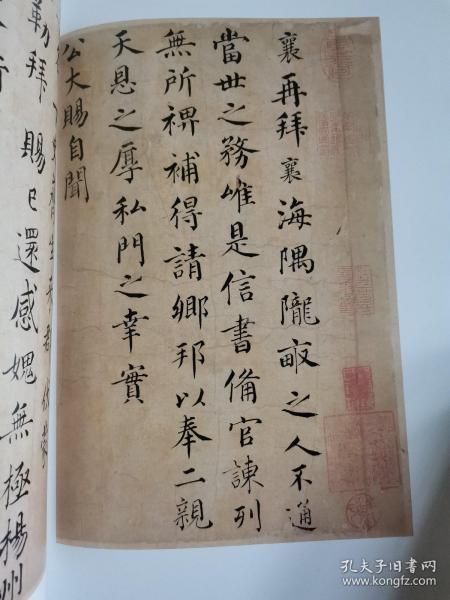 襄再拜襄海隅隴畝之人不通
當世之務唯是信書備官諫列
無所裨補得請鄉邦以奉二親
天恩之厚私門之幸實
公大賜自聞
勒拜賜已還感媿無極楊州
孔夫子旧书网
www.kongfz.com